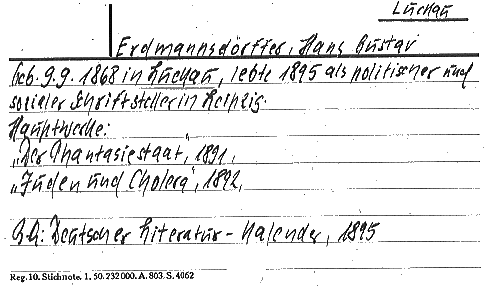 Luckau
Erdmannsdörffer, Hans Gustav
Geb. 9.9. 1868 in Luckau, lebte 1895 als politischer und
sozialer Schriftsteller in Leipzig.
Hauptwerke:
„Der Phantasiestaat", 1891,
„Juden und Cholera", 1892,
Deutscher Literatur-Kalender, 1895
Reg. 10. Stichnote. 1. 50. 232 000. A. 803. S. 4062